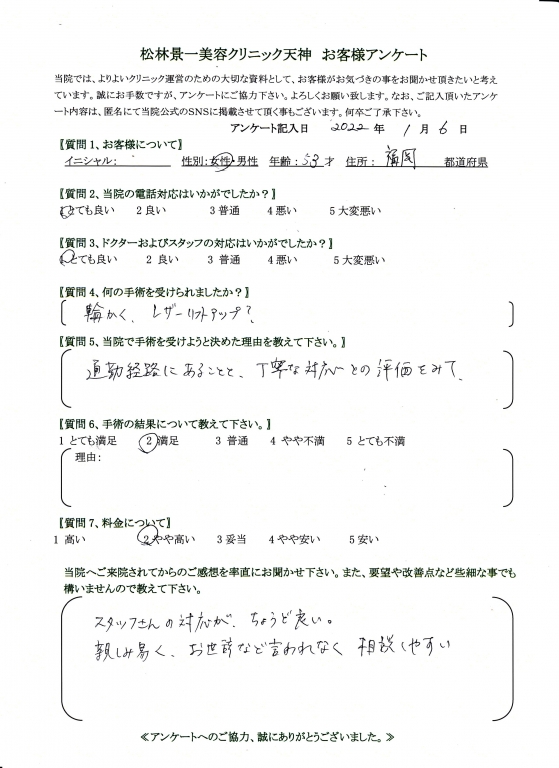 松林景一美容クリニック天神 お客様アンケート
当院では、よりよいクリニック運営のための大切な資料として、お客様がお気づきの事をお聞かせ頂きたいと考え
ています。誠にお手数ですが、アンケートにご協力下さい。よろしくお願い致します。なお、ご記入頂いたアンケ
ート内容は、匿名にて当院公式のSNSに掲載させて頂く事もございます。何卒ご了承下さい。
アンケート記入日 2022 年 1 月 6 日
【質問1、お客様について】
イニシャル: 性別:女性・男性 年齢:53才 住所: 福岡 都道府県
【質問2、当院の電話対応はいかがでしたか?】
1とても良い 2良い 3普通 4悪い 5大変悪い
【質問3、ドクターおよびスタッフの対応はいかがでしたか?】
1とても良い 2 良い 3 普通 4悪い 5大変悪い
【質問4、何の手術を受けられましたか?】
輪かく、レザーリフトアップ?
【質問5、当院で手術を受けようと決めた理由を教えて下さい。】
通勤経路にあることと、丁寧な対応との評価をみて、
【質問6、手術の結果について教えて下さい。】
1 とても満足 2 満足 3 普通 4 やや不満 5 とても不満
理由:
【質問7、料金について】
1 高い 2やや高い 3妥当 4やや安い 5安い
当院へご来院されてからのご感想を率直にお聞かせ下さい。また、要望や改善点など些細な事でも
構いませんので教えて下さい。
スタッフさんの対応が、ちょうど良い。
親しみ易く、お世辞など言われなく 相談しやすい
≪アンケートへのご協力、誠にありがとうございました。≫